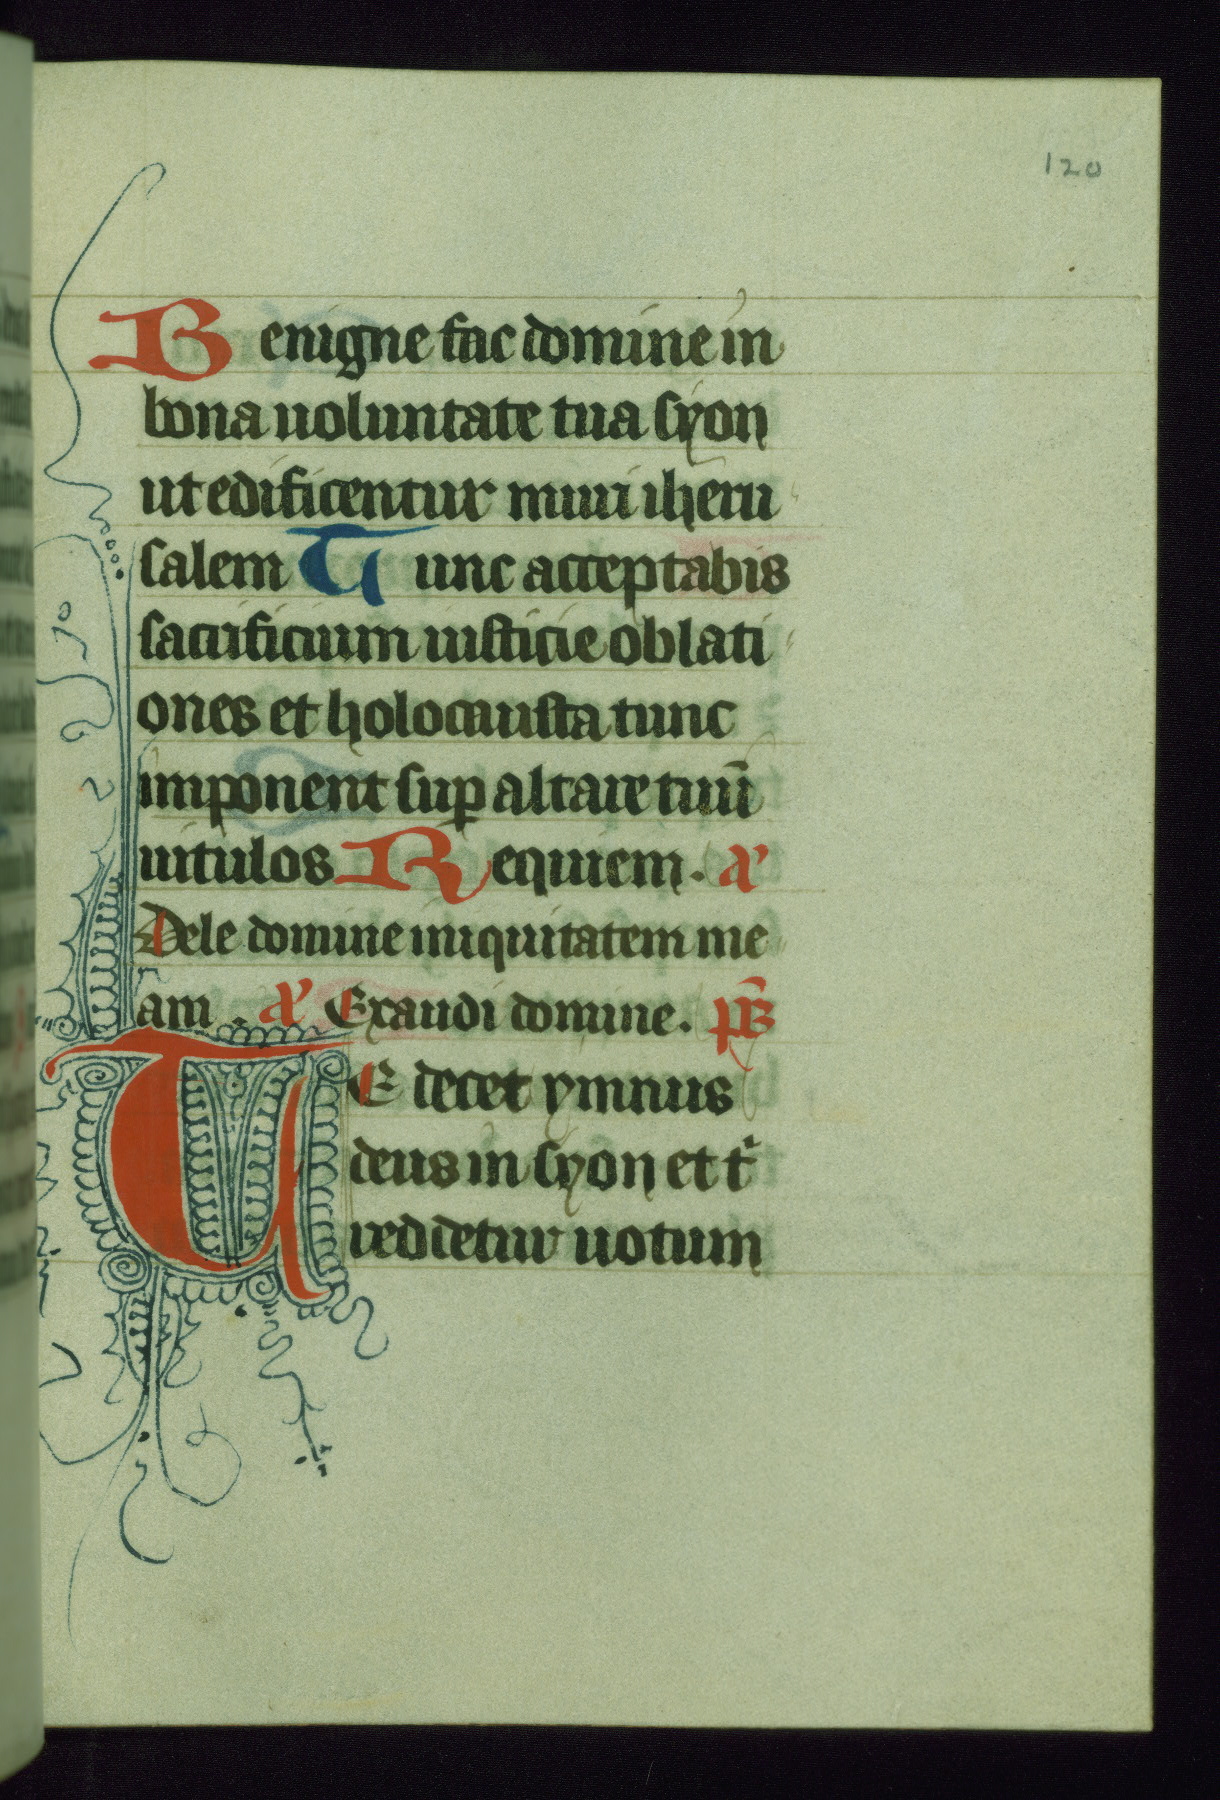 120
Benigne fac domine in
bona uoluntate tua syon
ut edificentur muri iheru
salem Tunc acceptabis
sacrificium iusticie oblati
ones et holocausta tunc
imponent sup altare tuū
uitulos Requiem. a͛
Dele domine iniquitatem me
am . a͛ Exaudi domine. p͞s
TE decet ymnus
deus in syon et t͛
reddetur uotum